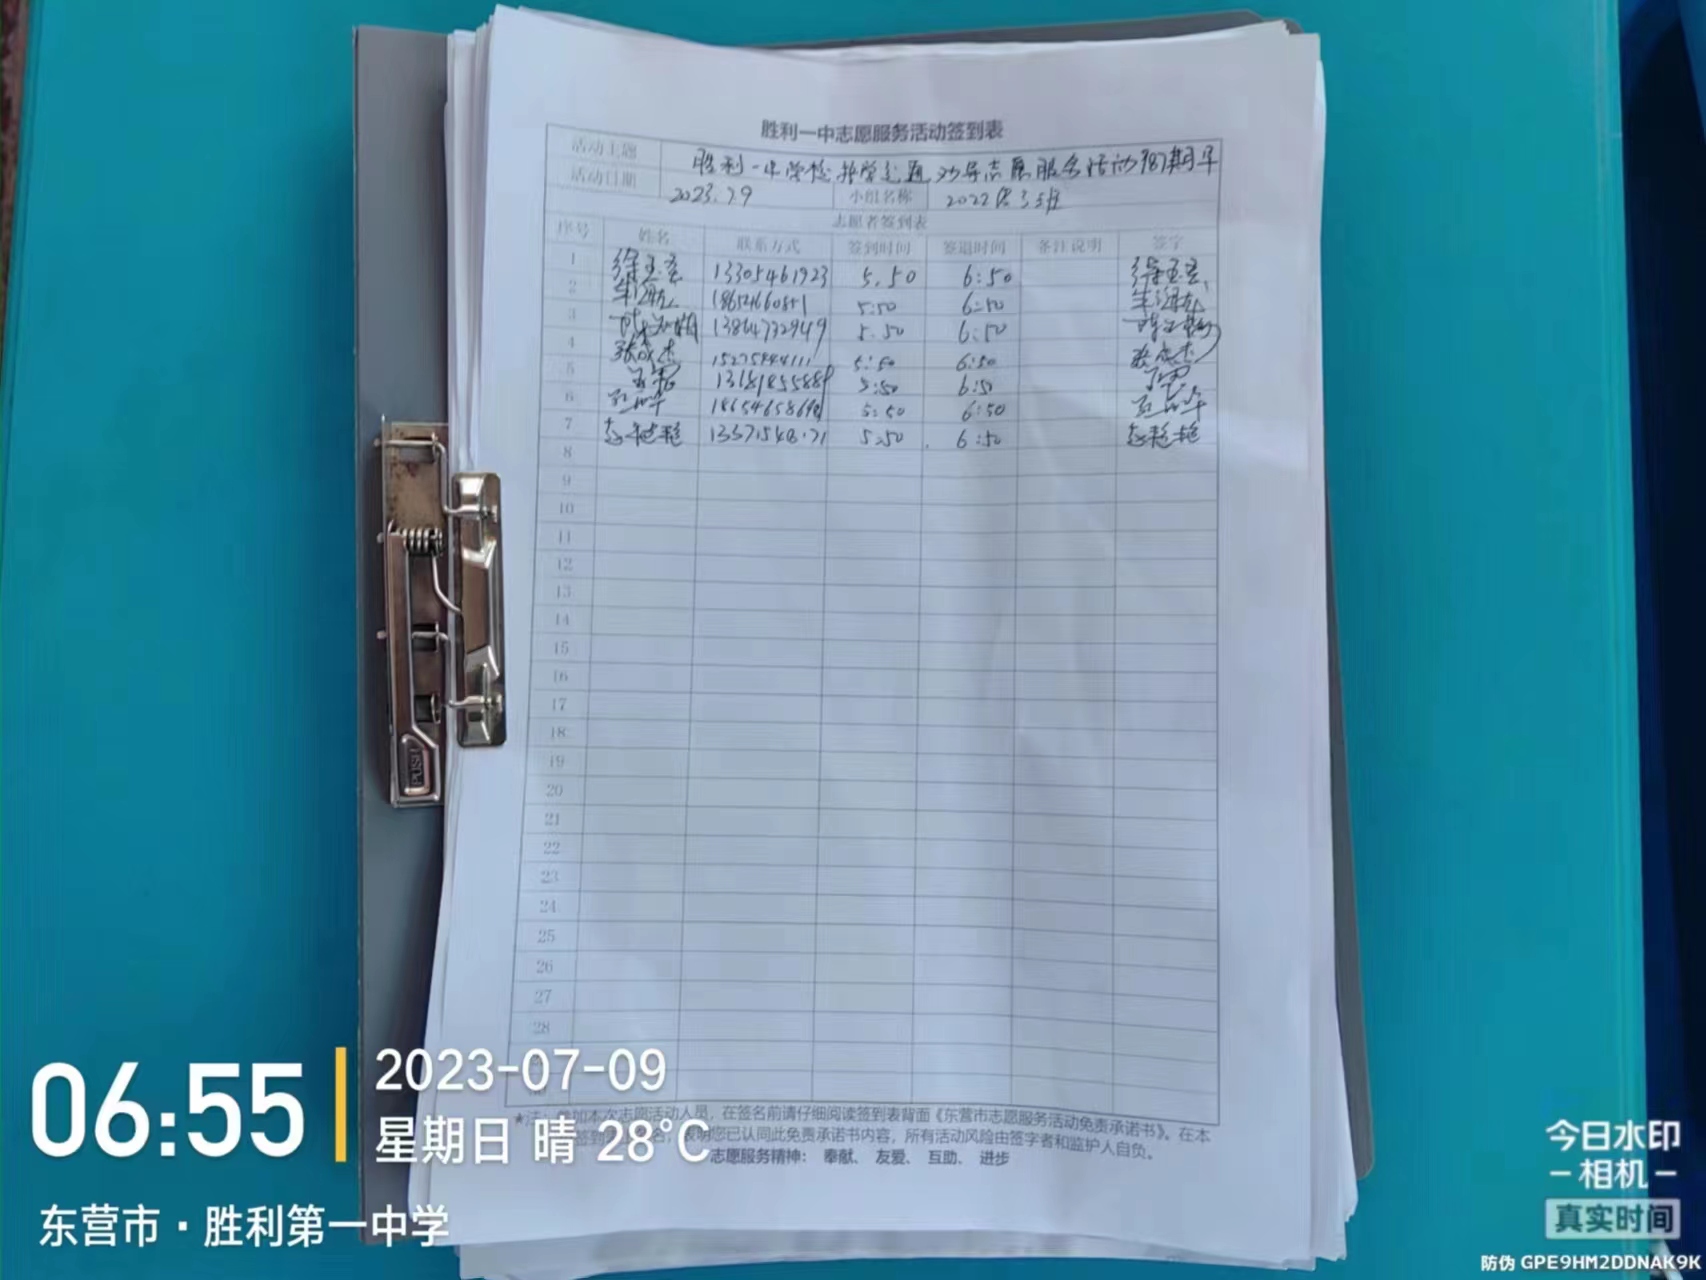 胜利一中志愿服务活动签到表
活动主题 胜利一中学校护学交通劝导志愿服务活动 期早
活动日期 2023.7.9 小组名称 2022级3班
志愿者签到表
序号 姓名 联系方式 签到时间 签退时间 备注说明 签字
1 13305461923 5.50 6:50
2 5:50 6:50
3 13864732949 5.50 6:50
4 张成杰 5:50 6:50 张成杰
5 5:50 6:50
6 5:50 6:50
7 赵艳艳 5.50 6:50 赵艳艳
8
9
10
11
12
13
14
15
16
17
18
19
20
21
22
23
24
25
26
27
28
★注: 参加本次志愿活动人员，在签名前请仔细阅读签到表背面《东营市志愿服务活动免责承诺书》。在本
签到 名，表明您已认同此免责承诺书内容，所有活动风险由签字者和监护人自负。
志愿服务精神： 奉献、 友爱、 互助、 进步
PUSH
06:55
2023-07-09
星期日 晴 28°C
东营市·胜利第一中学
今日水印
-相机-
真实时间
防伪 GPE9HM2DDNAK9K